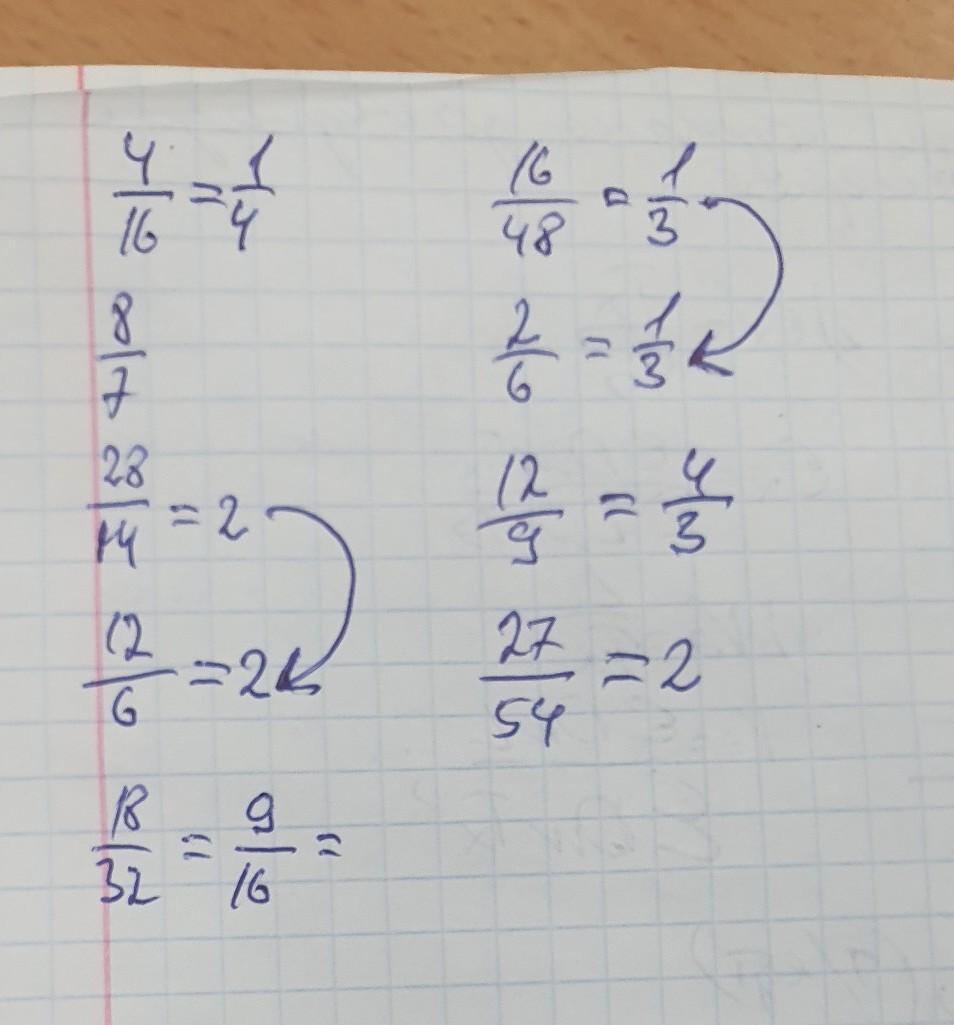 4/16 = 1/4
8/7
28/14 = 2
12/6 = 2
18/32 = 9/16 =
16/48 = 1/3
2/6 = 1/3
12/9 = 4/3
27/54 = 2